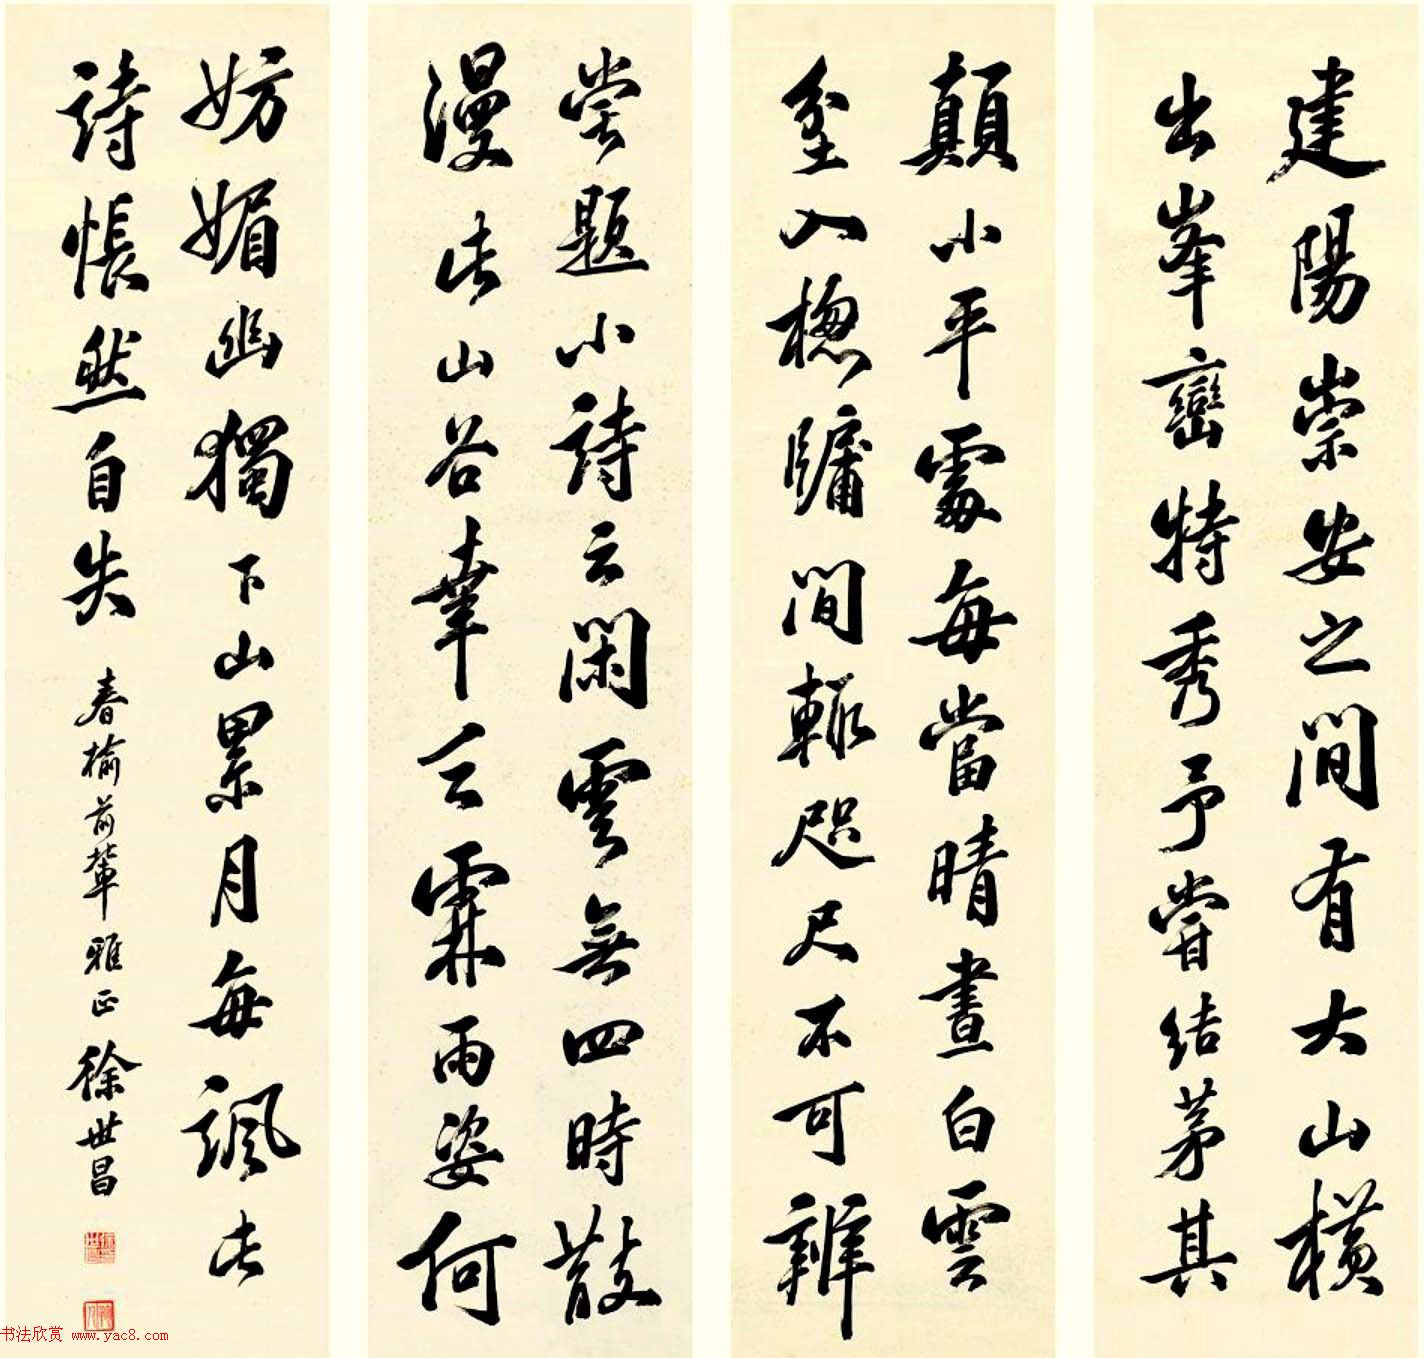 建陽崇安之間有大山橫
出峯巒特秀予嘗結茅其
顛小平處每當晴晝白雲
坌入樬牖間輒咫尺不可辨
嘗題小詩云閑雲無四時散
漫此山谷幸乏霖雨姿何
妨媚幽獨下山累月每諷此
詩悵然自失
春榆前輩雅正 徐世昌
书法欣赏 www.yac8.com